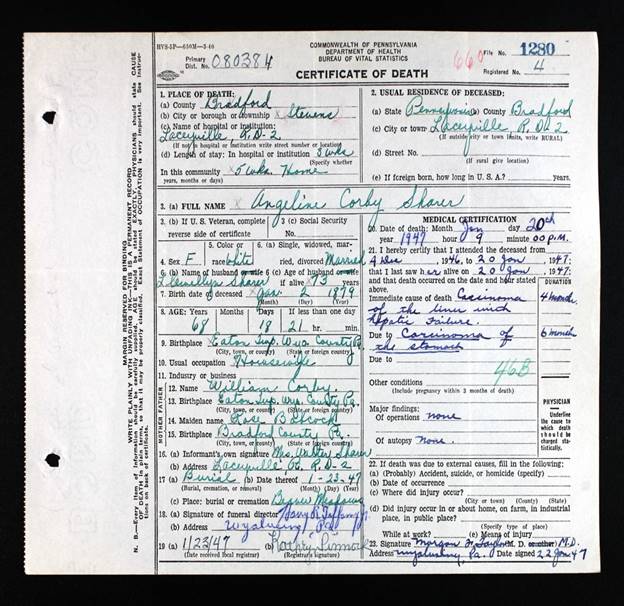 HVS-5P-650M-5-46
COMMONWEALTH OF PENNSYLVANIA
DEPARTMENT OF HEALTH
BUREAU OF VITAL STATISTICS
Primary Dist. No. 080384
660 File No. 1280
Registered No. 4
CERTIFICATE OF DEATH
MARGIN RESERVED FOR BINDING
WRITE PLAINLY WITH UNFADING INK—THIS IS A PERMANENT RECORD
1. PLACE OF DEATH:
(a) County Bradford
(b) City or borough or township Stevens
(c) Name of hospital or institution:
Laceyville, R.D-2
(If not in hospital or institution write street number or location)
(d) Length of stay: In hospital or institution 5 wks
(Specify whether
In this community 5 wks. Home
years, months or days)
2. USUAL RESIDENCE OF DECEASED:
(a) State Pennsylvania County Bradford
(c) City or town Laceyville R.D-2
(If outside city or town limits, write RURAL)
(d) Street No.
(If rural give location)
(e) If foreign born, how long in U. S. A.? years.
3. (a) FULL NAME Angeline Corby Sharer
3. (b) If U. S. Veteran, complete reverse side of certificate
3 (c) Social Security No.
4. Sex F
5. Color or race white
6. (a) Single, widowed, married, divorced Married
6. (b) Name of husband or wife Llewellyn Sharer
6 (c) Age of husband or wife if alive 73 years
7. Birth date of deceased Jan. 2 1879
(Month) (Day) (Year)
8. AGE: Years Months Days If less than one day
68 18 21 hr. min.
9. Birthplace Eaton Twp. Wyo County Pa
(City, town, or county) (State or foreign country)
10. Usual occupation Housewife
11. Industry or business
FATHER
12. Name William Corby
13. Birthplace Eaton Twp. Wyo. County Pa.
(City, town, or county) (State or foreign country)
MOTHER
14. Maiden name Babcock
15. Birthplace Bradford County Pa.
(City, town, or county) (State or foreign country)
16. (a) Informant's own signature Mrs. Walter Sharer
(b) Address Laceyville, Pa. R.D-2
17. (a) Burial (b) Date thereof 1-23-47
(Burial, cremation, or removal) (Month) (Day) (Year)
(c) Place: burial or cremation Beaver Meadows
18. (a) Signature of funeral director Harry R. Tiffany Jr.
(b) Address Wyalusing Pa
19. (a) 1/23/47
(Date received local registrar) (Registrar's signature)
MEDICAL CERTIFICATION
20. Date of death: Month Jan day 20th
year 1947 hour 9 minute 00 P.M.
21. I hereby certify that I attended the deceased from
4 Dec 1946, to 20 Jan, 1947:
that I last saw her alive on 20 Jan 1947:
and that death occurred on the date and hour stated above.
DURATION
Immediate cause of death Carcinoma of the liver with Hepatic Failure. 4 months
Due to Carcinoma of the stomach 6 months
Due to
46B
Other conditions
(Include pregnancy within 3 months of death)
PHYSICIAN
Underline the cause to which death should be charged statistically.
Major findings:
Of operations none
Of autopsy none.
22. If death was due to external causes, fill in the following:
(a) (Probably) Accident, suicide, or homicide (specify)
(b) Date of occurrence
(c) Where did injury occur?
(City or town) (County) (State)
(d) Did injury occur in or about home, on farm, in industrial
place, in public place?
(Specify type of place)
While at work? (e) Means of injury
23. Signature M. D. or other M.D.
Address Wyalusing, Pa. Date signed 22 Jan 47